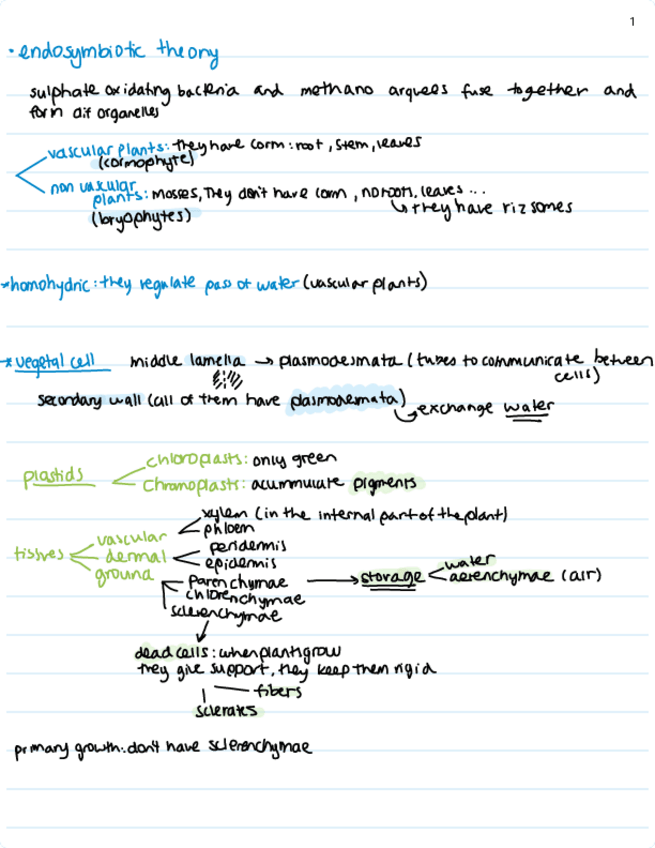 1
• endosymbiotic theory
sulphate oxidating bacteria and methano arquees fuse together and
form dif organelles
vascular plants: they have corm: root, stem, leaves
(cormophyte)
non vascular
plants: mosses, They don't have corm, no roots, leaves ...
(bryophytes) ↳ they have rizsomes
*homohydric: they regulate pass of water (vascular plants)
* vegetal cell middle lamella → plasmodesmata (tubes to communicate between
cells)
secondary wall (all of them have plasmodesmata)
↳ exchange water
chloroplasts: only green
plastids
chromoplasts: acummulate pigments
xylem (in the internal part of the plant)
vascular phloem
tissues dermal peridermis
epidermis
ground parenchymae → storage water
aerenchymae (air)
chlorenchymae
sclerenchymae
dead cells: when plants grow
they give support, they keep them rigid
fibers
sclerates
primary growth: don't have sclerenchymae